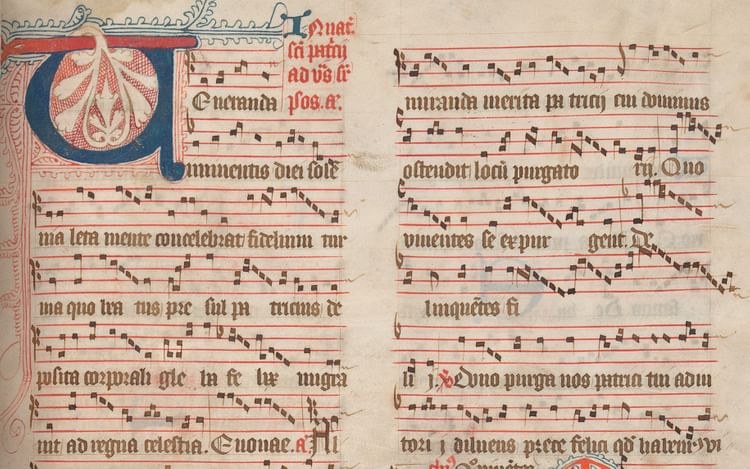 In nat.
sci patrii
ad vs sr
Eneranda psos. æ.
imminentis diei sole
nia leta mente concelebrat fidelium tur
ma quo bea tus pre sul pa tricius de
posita corporali gle ba fe lix migra
uit ad regna celestia. Euouae. a Al
miranda merita pa tricij cui dominus
ostendit locū purgato rij. Quo
viuentes se ex pur gent. De
linquētes fi
li j. V Quo purga nos patrici tui adiu
tori j diluens prece felici qd habent vi